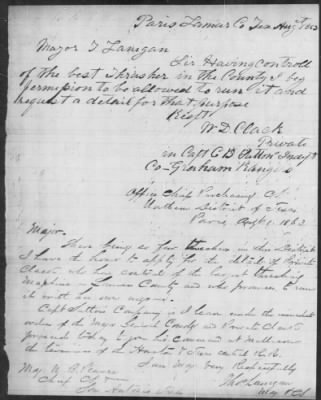 Paris Lamar Co Tex Aug 1 1863
Major T Lanigan
Sir Having controll
of the best Thrasher in the County I beg
permission to be allowed to run it and
request a detail for that purpose
Respt
W. D. Clack
Private
in Capt G B Sutton
Co Graham Rangers
Office Chief Purchasing C.S.
Northern District of Texas
Paris Augt 1. 1863
Major.
There being so few threshers in this District
I have the honor to apply for the detail of Private
Clack, who has control of the largest threshing
machine in Lamar County and who promises to run
it with our wagons.
Capt Sutton Company is I learn under the immediate
orders of the Major General Comdg and Private Clack
proceeds today to join his command at
the terminus of the Houston & Texas central R.R.
I am Major Very Respectfully
Maj.
Chief C.S.
San Antonio
Tho Lanigan
Maj & CS